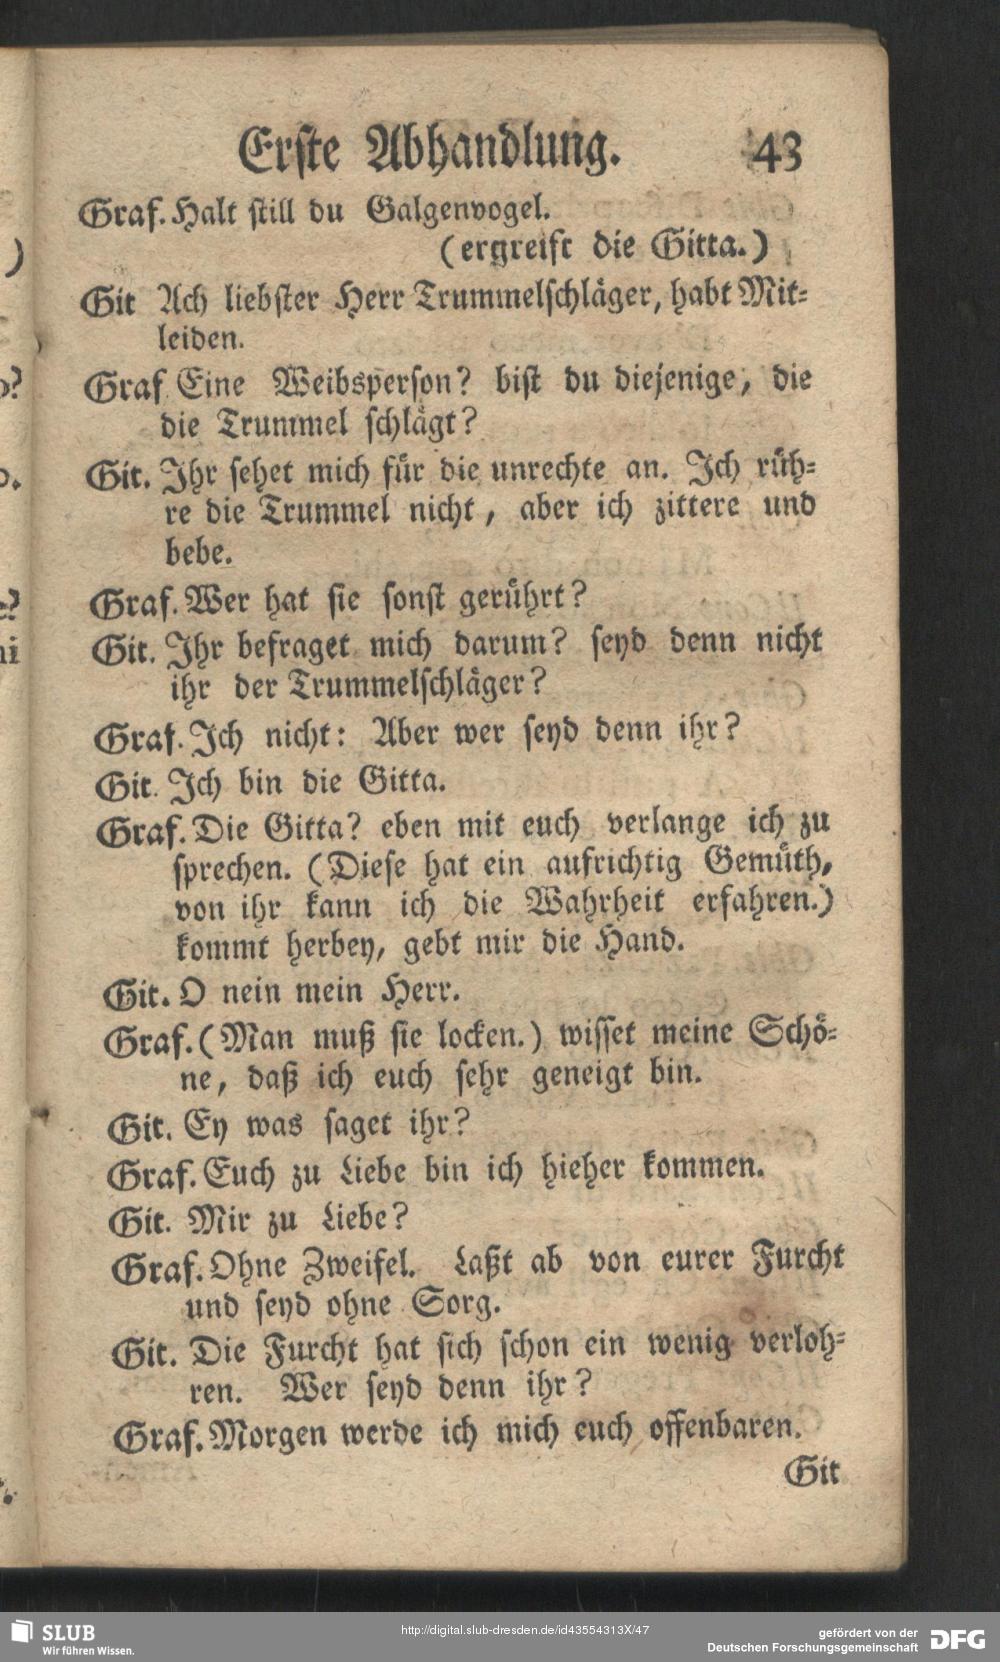 Erste Abhandlung. 43
Graf. Halt still du Galgenvogel.
(ergreift die Gitta.)
Git Ach liebster Herr Trummelschläger, habt Mit-
leiden.
Graf Eine Weibsperson? bist du diejenige, die
die Trummel schlägt?
Git. Ihr sehet mich für die unrechte an. Ich rüh-
re die Trummel nicht, aber ich zittere und
bebe.
Graf. Wer hat sie sonst gerührt?
Git. Ihr befraget mich darum? seyd denn nicht
ihr der Trummelschläger?
Graf. Ich nicht: Aber wer seyd denn ihr?
Git. Ich bin die Gitta.
Graf. Die Gitta? eben mit euch verlange ich zu
sprechen. (Diese hat ein aufrichtig Gemüth,
von ihr kann ich die Wahrheit erfahren.)
kommt herbey, gebt mir die Hand.
Git. O nein mein Herr.
Graf. (Man muß sie locken.) wisset meine Schö-
ne, daß ich euch sehr geneigt bin.
Git. Ey was saget ihr?
Graf. Euch zu Liebe bin ich hieher kommen.
Git. Mir zu Liebe?
Graf. Ohne Zweifel. Laßt ab von eurer Furcht
und seyd ohne Sorg.
Git. Die Furcht hat sich schon ein wenig verloh-
ren. Wer seyd denn ihr?
Graf. Morgen werde ich mich euch offenbaren.
Git
SLUB
Wir führen Wissen.
http://digital.slub-dresden.de/id43554313X/47
gefördert von der
Deutschen Forschungsgemeinschaft
DFG